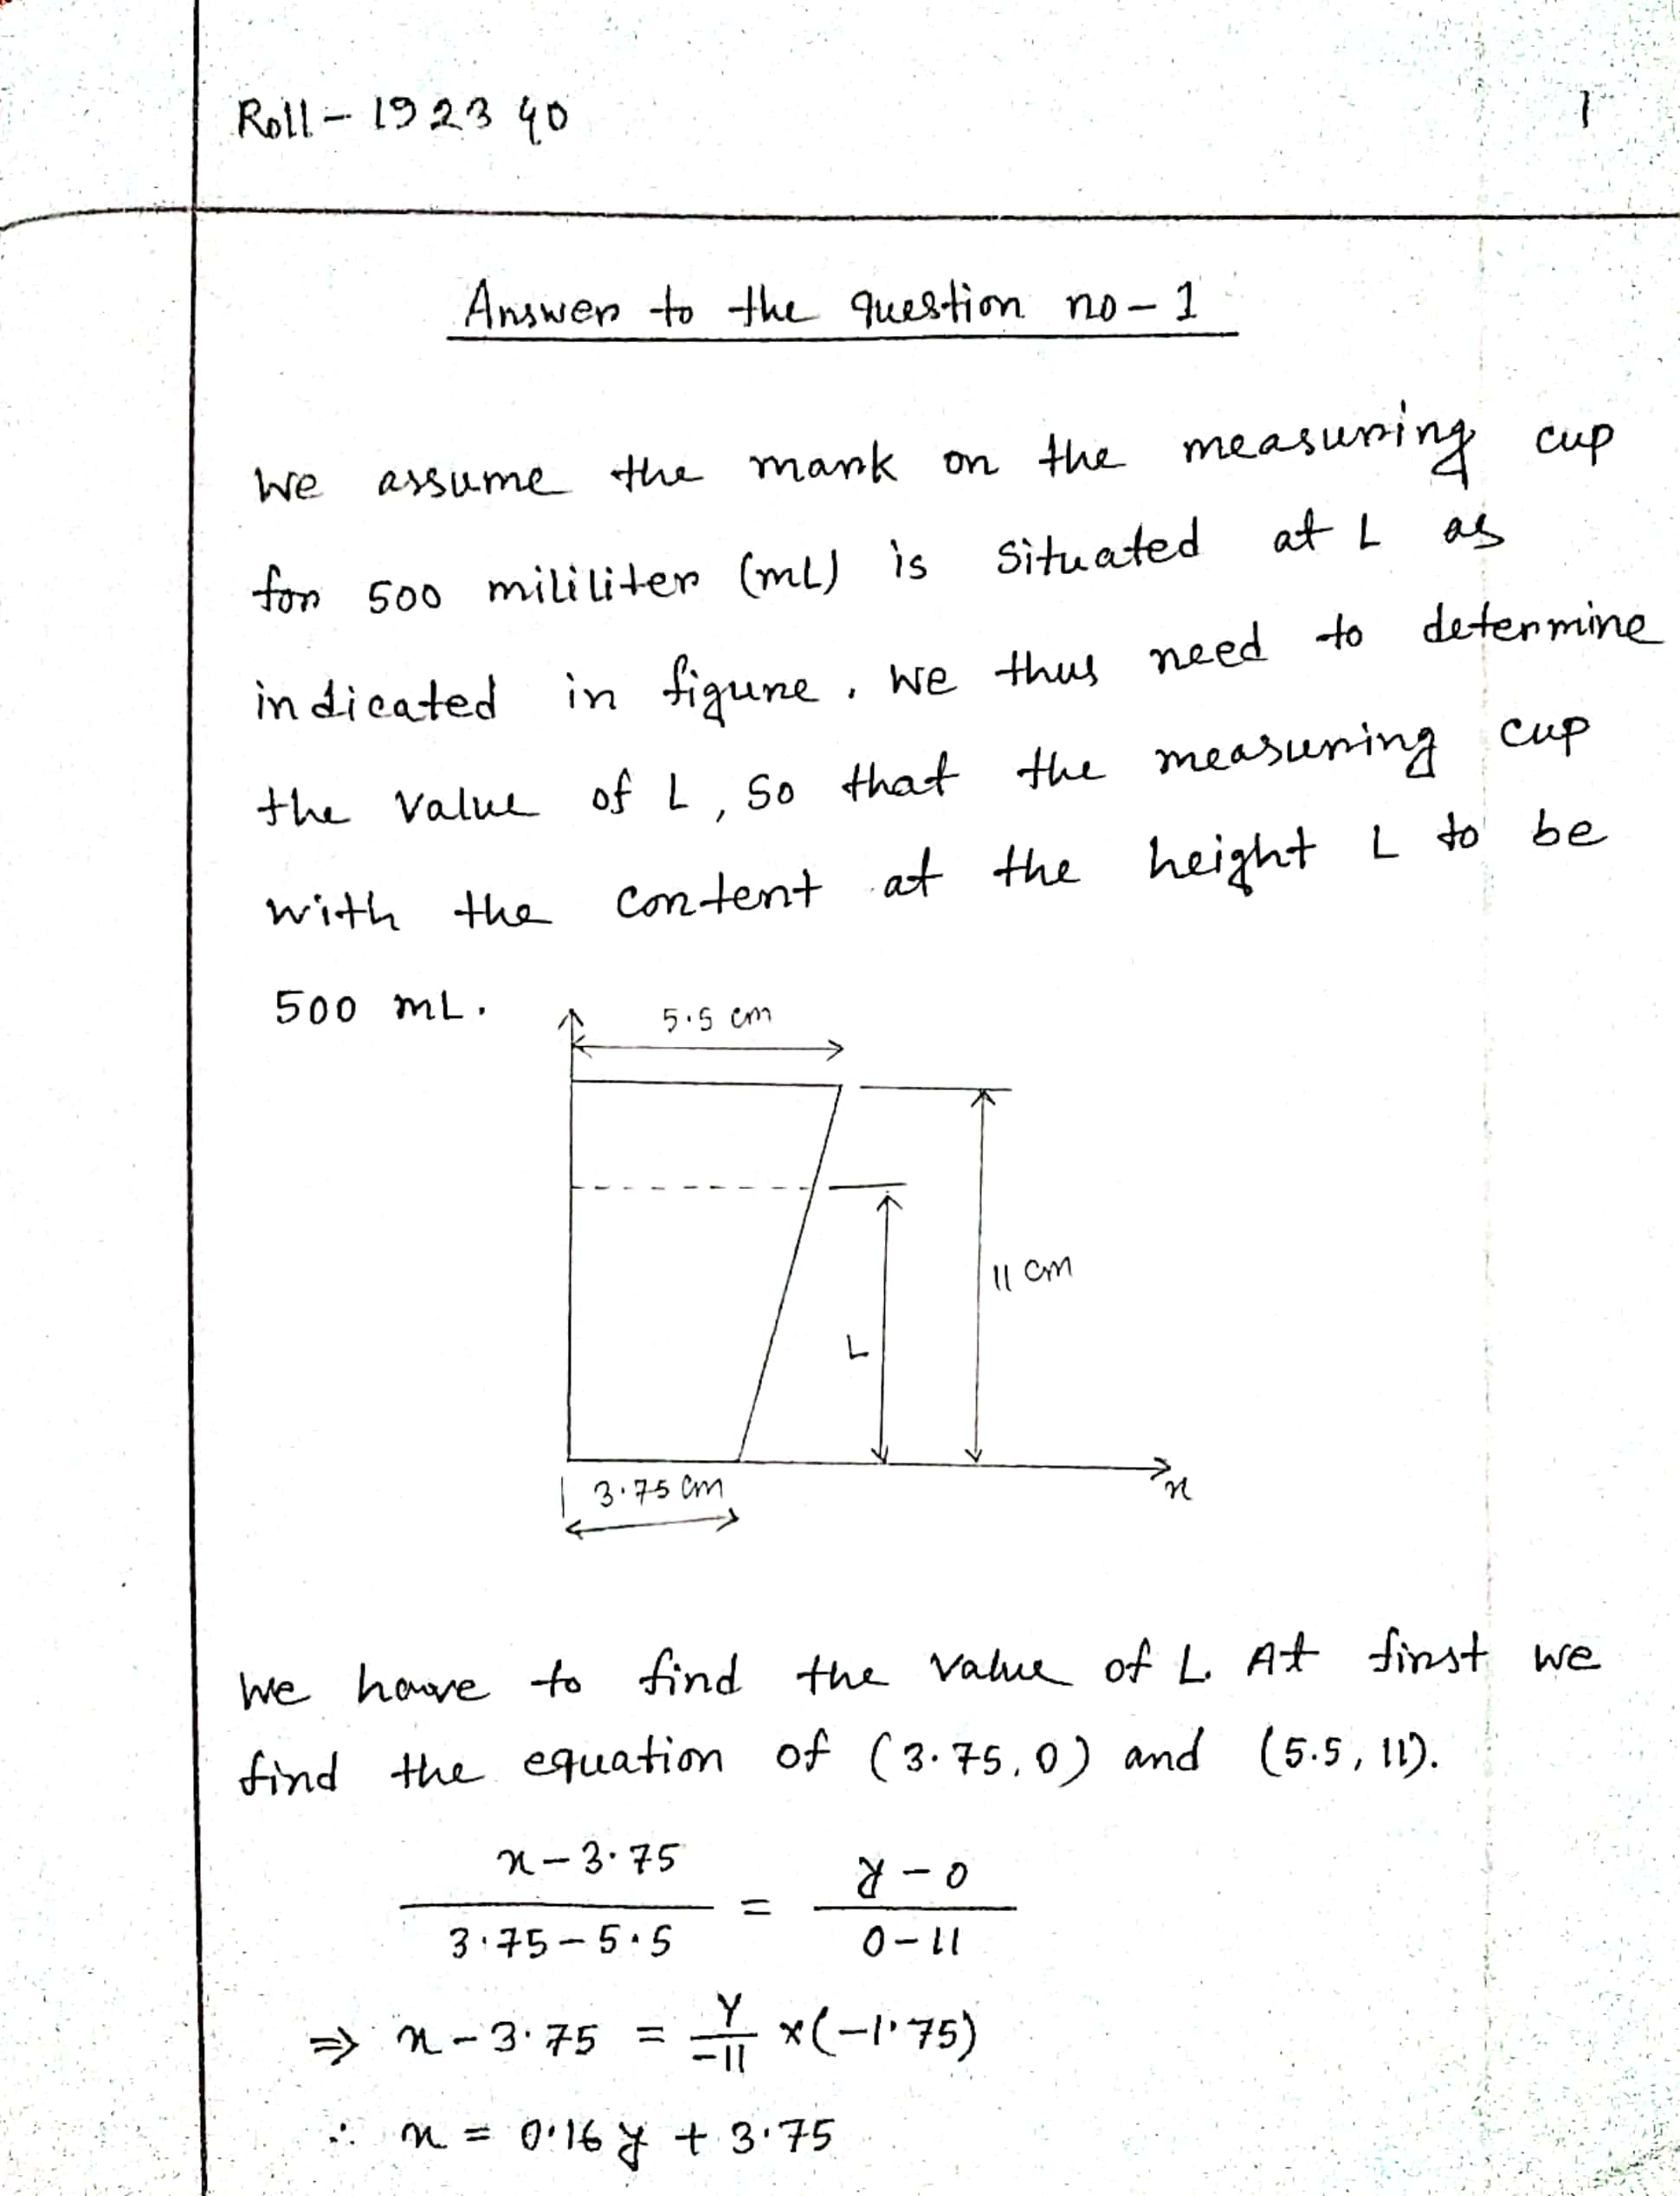 Roll - 192340
1
Answer to the question no-1
We assume the mark on the measuring cup
for 500 mililiter (mL) is situated at L as
indicated in figure. We thus need to determine
the value of L, so that the measuring cup
with the content at the height L to be
500 mL.
5.5 cm
11 cm
L
x
3.75 cm
We have to find the value of L. At first we
find the equation of (3.75, 0) and (5.5, 11).
x - 3.75 / 3.75 - 5.5 = y - 0 / 0 - 11
⇒ x - 3.75 = y / -11 × (-1.75)
∴ x = 0.16 y + 3.75